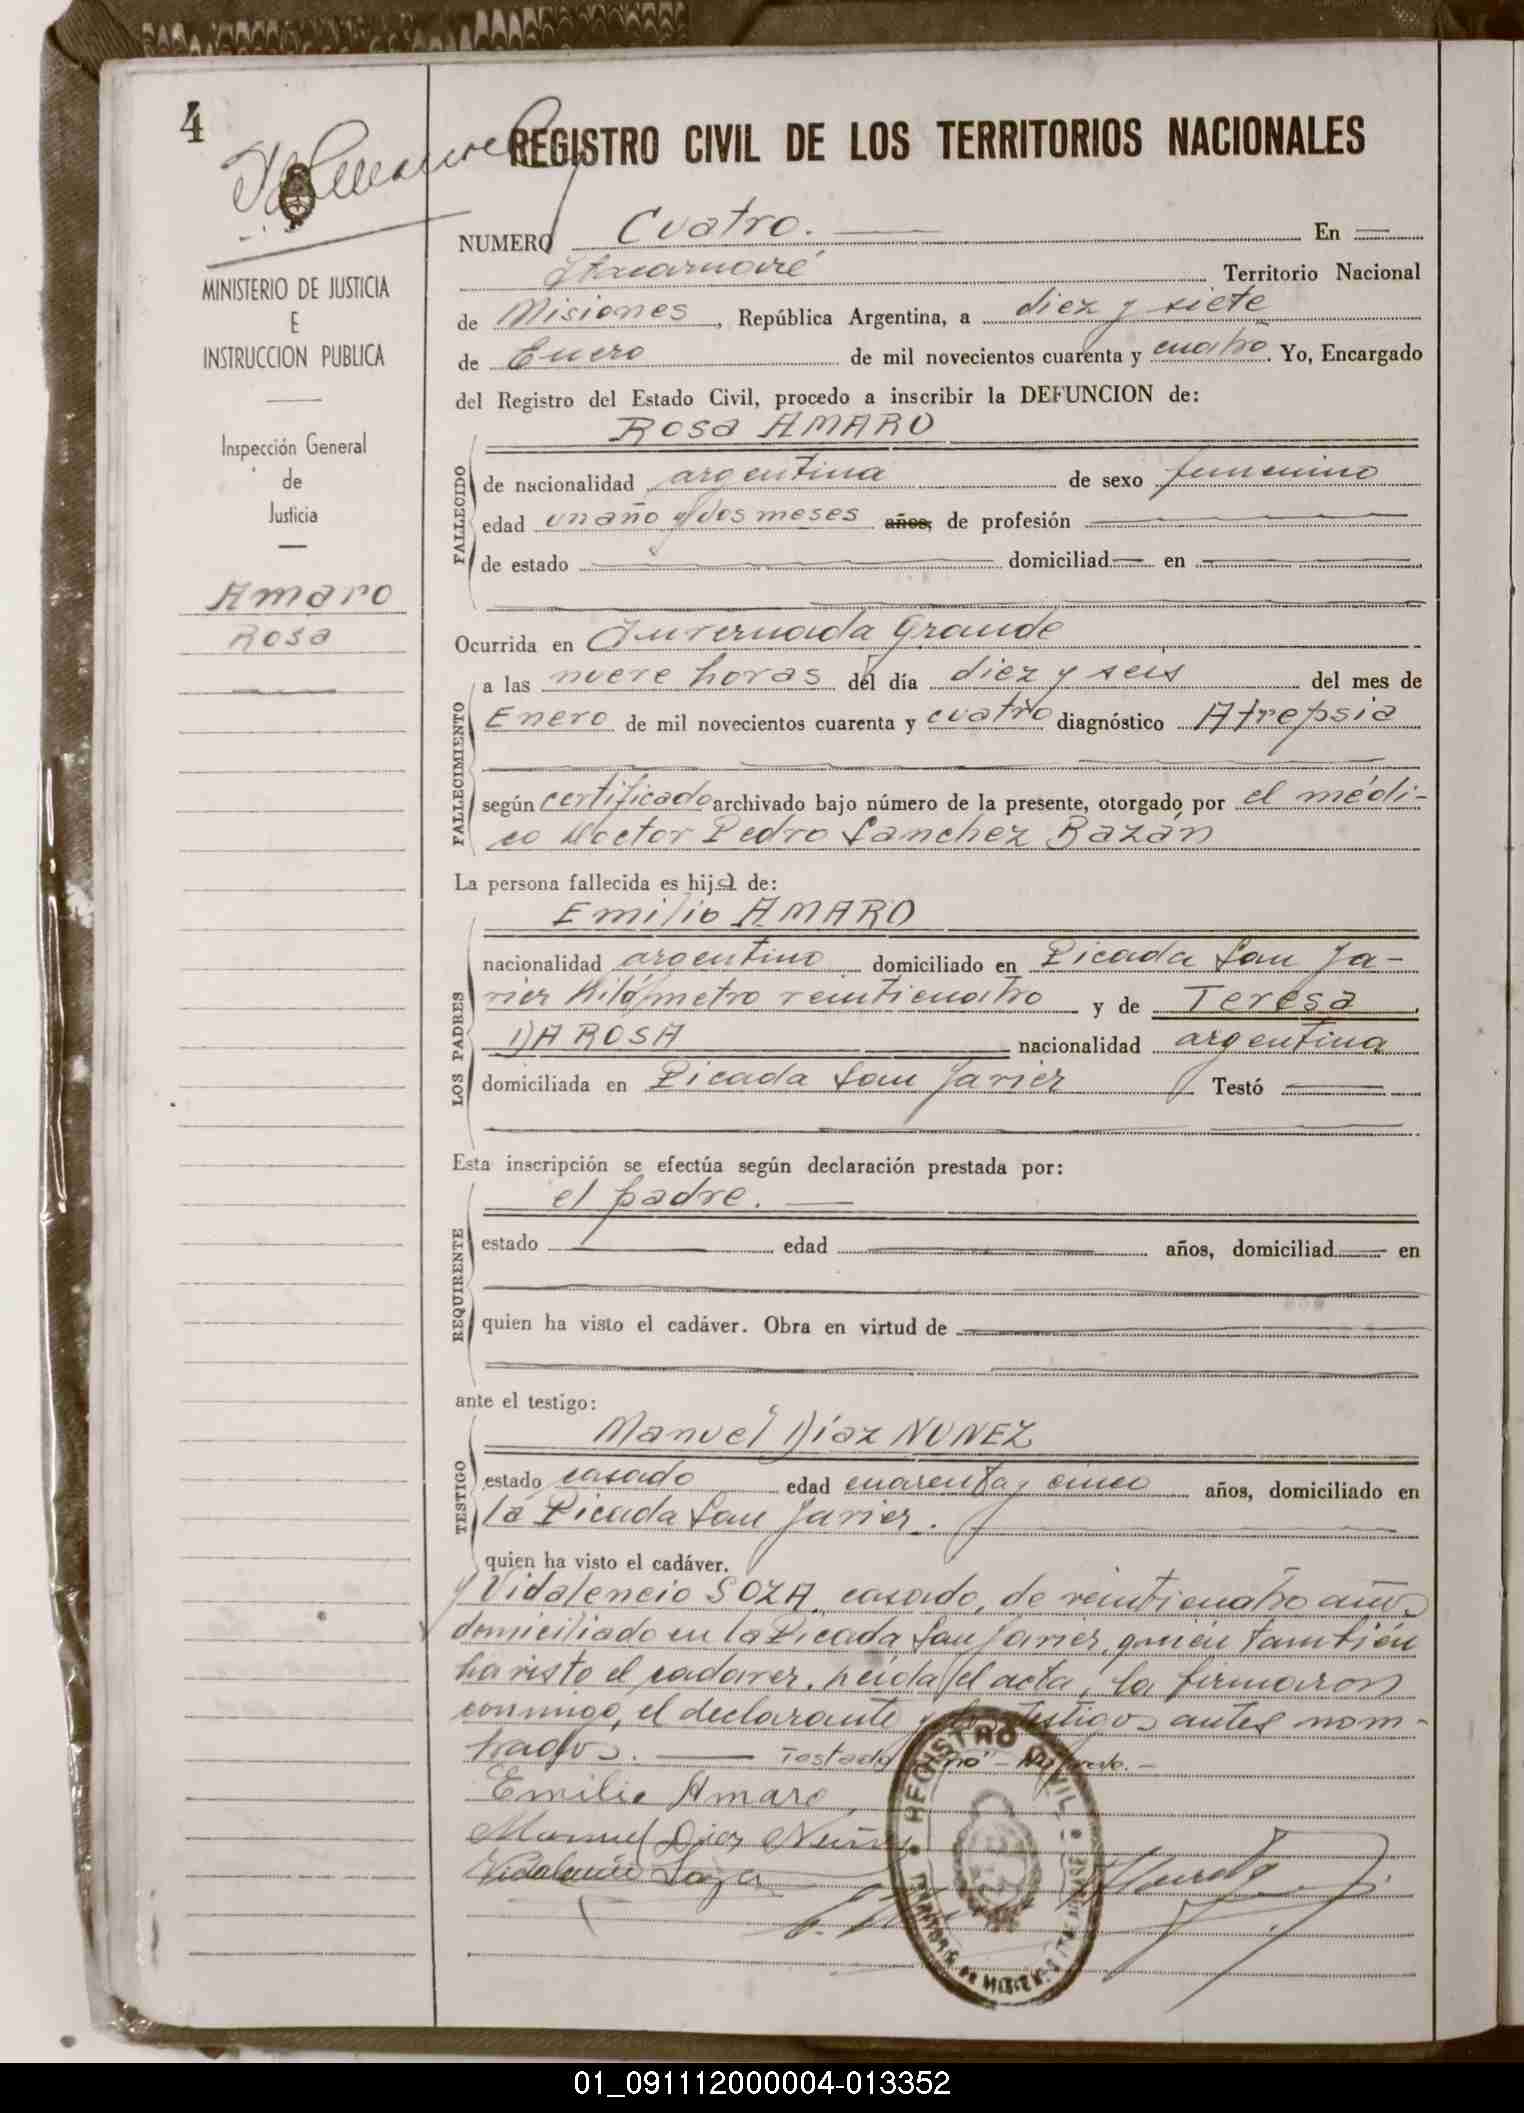 4
REGISTRO CIVIL DE LOS TERRITORIOS NACIONALES
MINISTERIO DE JUSTICIA
E
INSTRUCCION PUBLICA
Inspección General
de
Justicia
Amaro
Rosa
NUMERO Cuatro. En
Itacaruaré Territorio Nacional
de Misiones, República Argentina, a diez y siete
de Enero de mil novecientos cuarenta y cuatro. Yo, Encargado
del Registro del Estado Civil, procedo a inscribir la DEFUNCION de:
Rosa AMARO
FALLECIDO
de nacionalidad argentina de sexo femenino
edad un año y dos meses años, de profesión
de estado domiciliad en
Ocurrida en Invernada Grande
FALLECIMIENTO
a las nueve horas del día diez y seis del mes de
Enero de mil novecientos cuarenta y cuatro diagnóstico Atrepsia
según certificado archivado bajo número de la presente, otorgado por el médi-
co Doctor Pedro Sanchez Bazán
La persona fallecida es hija de:
LOS PADRES
Emilio AMARO
nacionalidad argentino domiciliado en Picada San Ja-
vier Kilómetro veinticuatro y de Teresa
DA ROSA nacionalidad argentina
domiciliada en Picada San Javier Testó
Esta inscripción se efectúa según declaración prestada por:
REQUIRENTE
el padre.
estado edad años, domiciliad en
quien ha visto el cadáver. Obra en virtud de
ante el testigo:
TESTIGO
Manuel Díaz NUNEZ
estado casado edad cuarenta y cinco años, domiciliado en
la Picada San Javier.
quien ha visto el cadáver.
y Vidalencio SOZA, casado, de veinticuatro años
domiciliado en la Picada San Javier, quien también
ha visto el cadaver. Leída el acta, la firmaron
conmigo, el declarante y los testigos antes nom-
brados. Testado
Emilio Amaro
Manuel Diaz Nuñez
Vidalencio Soza
REGISTRO CIVIL
01_091112000004-013352